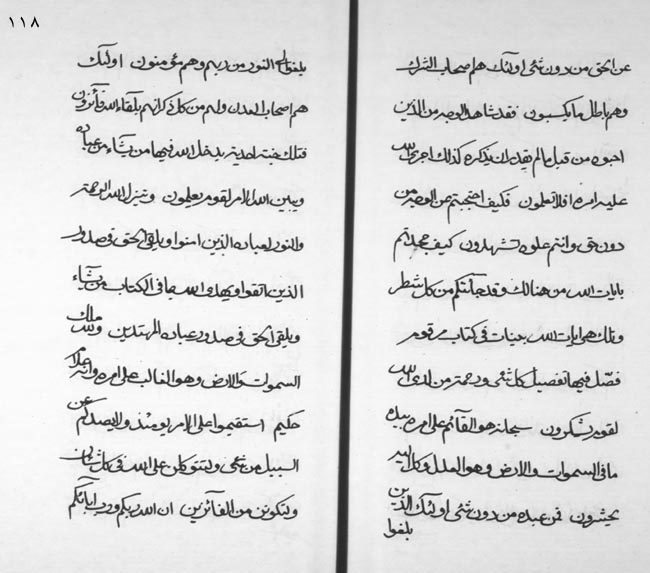 ١١٨
عن الحق من دون شئ اولئك هم اصحاب الشرك
وهم باطل ما يكسبون فقد شاهد الوجه من الذين
احبوه من قبل ما لم يقدر ان يذكره كذلك اجرى الله
عليه امره افلا تعلمون فكيف احتجبتم عن الوجه من
دون حق وانتم علوه تشهدون كيف جحدتم
بايات الله من هنالك وقد جائتكم من كل شطر
وتلك هى ايات الله بينات فى كتاب مرقوم
فصل فيها تفصيل كل شئ ورحمة من لدى الله
لقوم يشكرون سبحانه هو القائم على امره بيده
ما فى السموات والارض وهو العدل وكل اليه
يحشرون فمن عبده من دون شئ اولئك الذين
بلغوا
بلغوا الى النور من ربهم وهم مؤمنون اولئك
هم اصحاب العدن ولهم من كل ذكر انهم بلقاء الله فائزون
فتلك جنة احدية يدخل الله فيها من يشاء من عباده
ويبين الله الامر لقوم يعلمون وينزل الله الرحمة
والنور لعباده الذين امنوا ويلقى الحق فى صدور
الذين اتقوا ويهدى الله بما فى الكتاب من يشاء
ويلقى الحق فى صدور عباده المهتدين ولله ملك
السموات والارض وهو الغالب على امره وانه علام
حكيم استقيموا على الامر يومئذ ولا يصدكم عن
السبيل من شئ ولتتوكلن على الله فى كل شان
ولتكونن من الفائزين ان الله ربكم ورب ابائكم